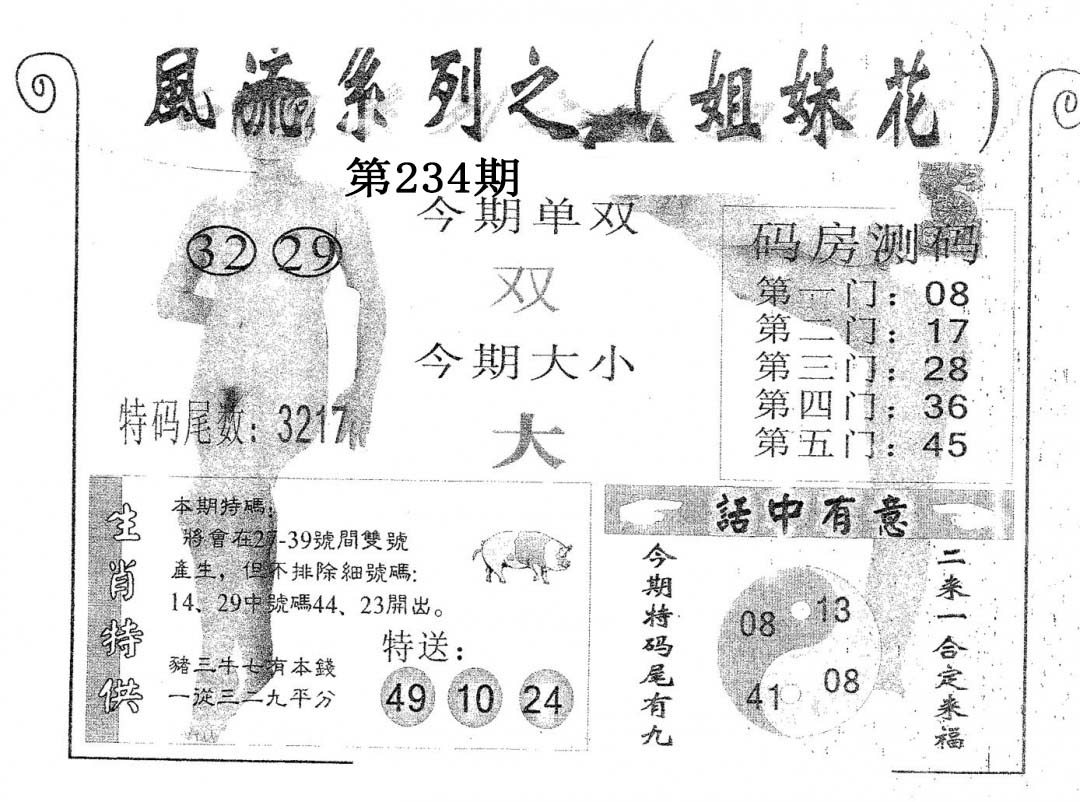 風流系列之（姐妹花）
第234期
今期单双
双
今期大小
大
32 29
特码尾数：3217
码房测码
第一门：08
第二门：17
第三门：28
第四门：36
第五门：45
生肖特供
本期特碼：
將會在27-39號間雙號
產生，但不排除細號碼：
14、29中號碼44、23開出。
豬三牛七有本錢
一從三二九平分
特送：
49 10 24
話中有意
今期特码尾有九
08 13
41 08
二来一合定来福